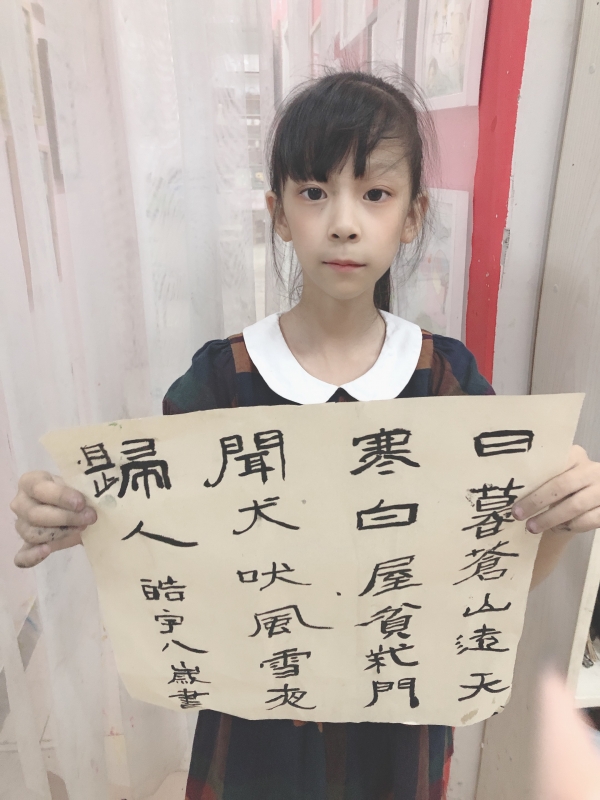 日暮蒼山遠天
寒白屋貧柴門
聞犬吠風雪夜
歸人
皓宇八歲書